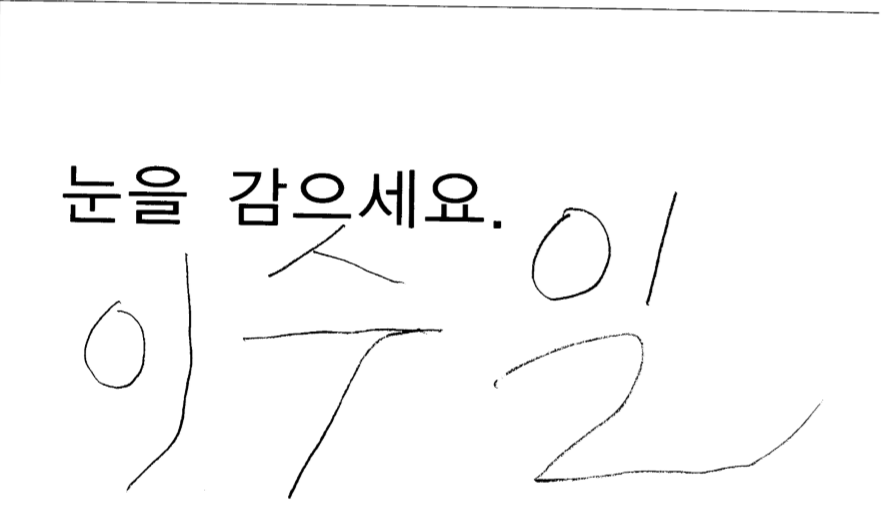 눈을 감으세요.
이수일